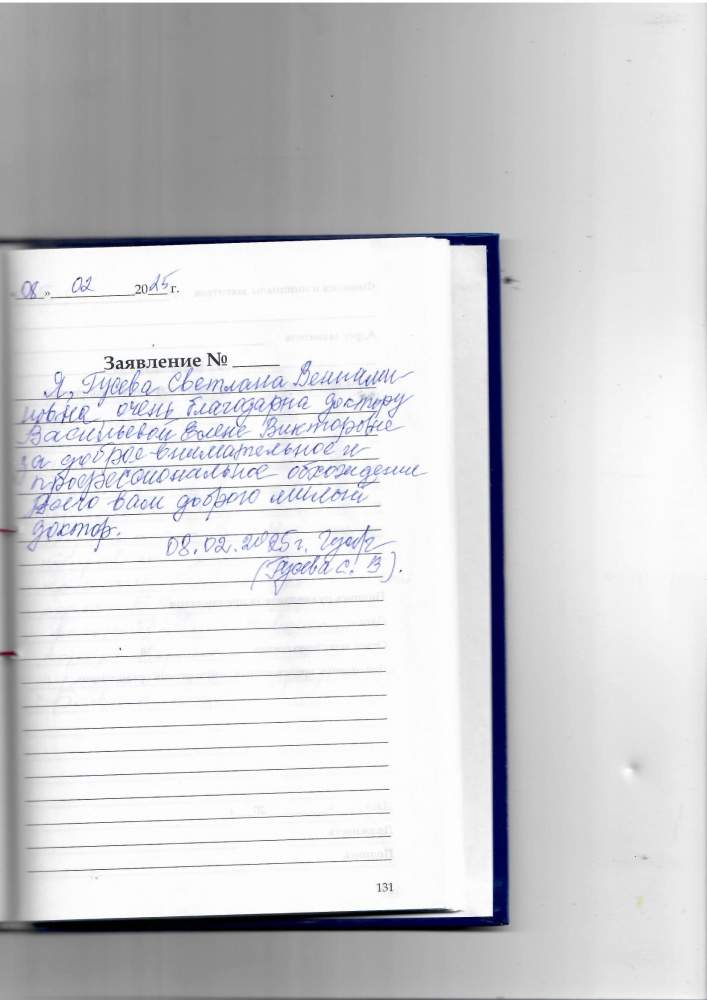 «08» 02 2025 г.
Заявление №
Я, Гусева Светлана Вениами-
новна очень благодарна доктору
Васильевой Елене Викторовне
за доброе внимательное и
профессиональное обхождение
Всего вам доброго милый
доктор.
08.02.2025 г.
(Гусева С. В).
131